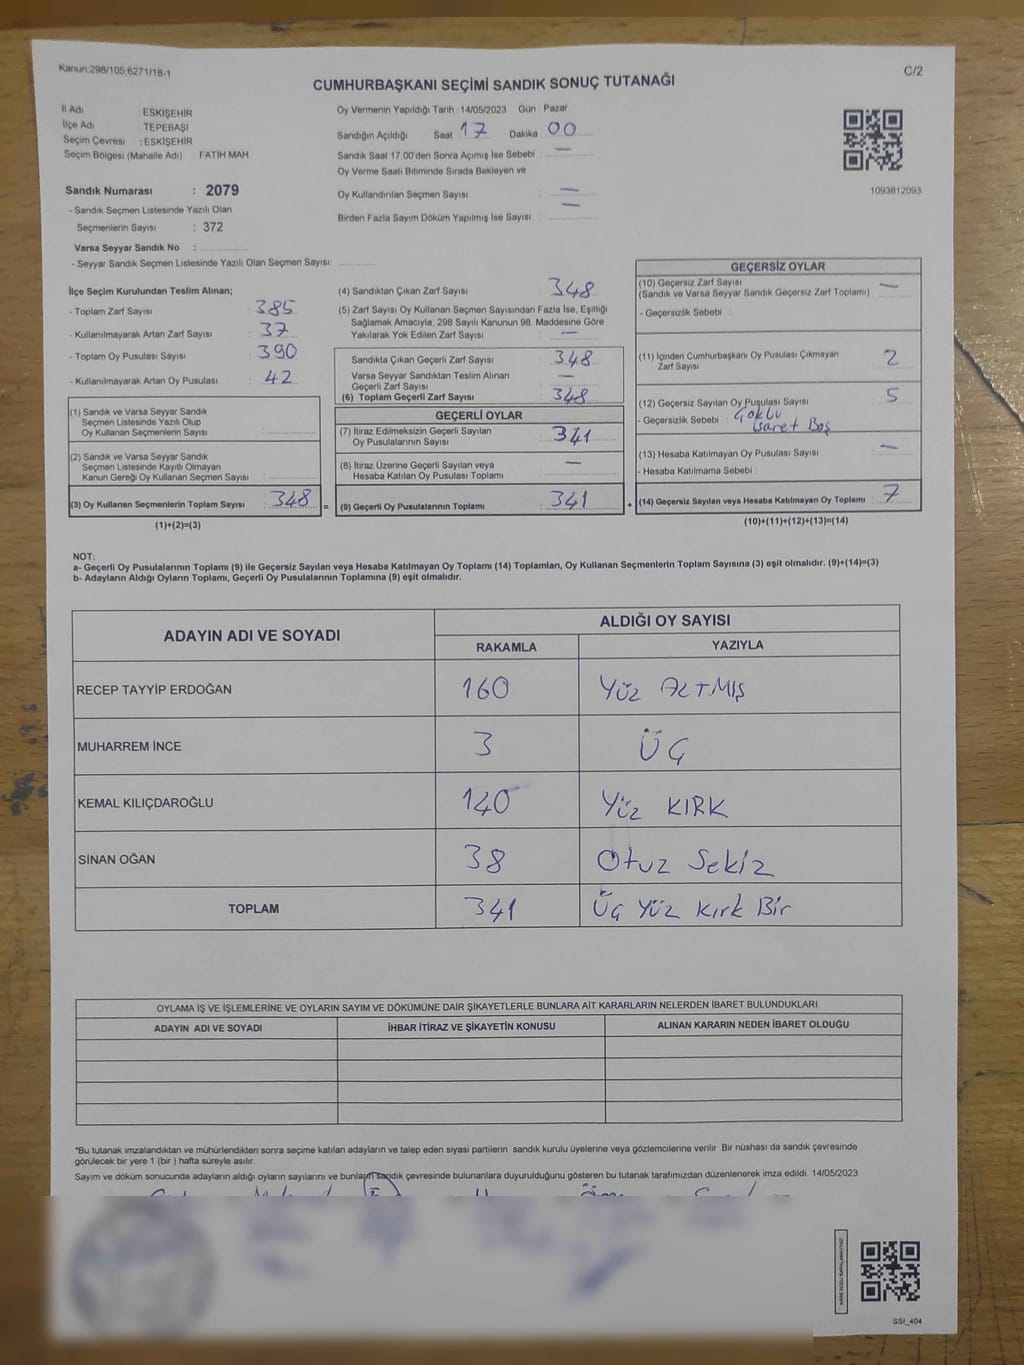 Kanun;298/105;6271/18-1
C/2
CUMHURBAŞKANI SEÇİMİ SANDIK SONUÇ TUTANAĞI
İl Adı ESKİŞEHİR
İlçe Adı TEPEBAŞI
Seçim Çevresi : ESKİŞEHİR
Seçim Bölgesi (Mahalle Adı) FATİH MAH
Sandık Numarası : 2079
- Sandık Seçmen Listesinde Yazılı Olan
Seçmenlerin Sayısı : 372
Varsa Seyyar Sandık No :
- Seyyar Sandık Seçmen Listesinde Yazılı Olan Seçmen Sayısı:
Oy Vermenin Yapıldığı Tarih :14/05/2023 Gün : Pazar
Sandığın Açıldığı Saat 17 Dakika : 00
Sandık Saat 17:00'den Sonra Açımış İse Sebebi : —
Oy Verme Saati Bitiminde Sırada Bekleyen ve
Oy Kullandırılan Seçmen Sayısı : —
Birden Fazla Sayım Döküm Yapılmış İse Sayısı : —
1093812093
İlçe Seçim Kurulundan Teslim Alınan;
- Toplam Zarf Sayısı : 385
- Kullanılmayarak Artan Zarf Sayısı : 37
- Toplam Oy Pusulası Sayısı : 390
- Kullanılmayarak Artan Oy Pusulası : 42
(1) Sandık ve Varsa Seyyar Sandık
Seçmen Listesinde Yazılı Olup
Oy Kullanan Seçmenlerin Sayısı :
(2) Sandık ve Varsa Seyyar Sandık
Seçmen Listesinde Kayıtlı Olmayan
Kanun Gereği Oy Kullanan Seçmen Sayısı :
(3) Oy Kullanan Seçmenlerin Toplam Sayısı : 348 =
(1)+(2)=(3)
(4) Sandıktan Çıkan Zarf Sayısı : 348
(5) Zarf Sayısı Oy Kullanan Seçmen Sayısından Fazla İse, Eşitliği
Sağlamak Amacıyla, 298 Sayılı Kanunun 98. Maddesine Göre
Yakılarak Yok Edilen Zarf Sayısı : —
Sandıkta Çıkan Geçerli Zarf Sayısı : 348
Varsa Seyyar Sandıktan Teslim Alınan
Geçerli Zarf Sayısı : —
(6) Toplam Geçerli Zarf Sayısı : 348
GEÇERLİ OYLAR
(7) İtiraz Edilmeksizin Geçerli Sayılan
Oy Pusulalarının Sayısı : 341
(8) İtiraz Üzerine Geçerli Sayılan veya
Hesaba Katılan Oy Pusulası Toplamı : —
(9) Geçerli Oy Pusulalarının Toplamı : 341 +
GEÇERSİZ OYLAR
(10) Geçersiz Zarf Sayısı —
(Sandık ve Varsa Seyyar Sandık Geçersiz Zarf Toplamı)
- Geçersizlik Sebebi :
(11) İçinden Cumhurbaşkanı Oy Pusulası Çıkmayan
Zarf Sayısı 2
(12) Geçersiz Sayılan Oy Pusulası Sayısı : 5
- Geçersizlik Sebebi : Çoklu
işaret Boş
(13) Hesaba Katılmayan Oy Pusulası Sayısı : —
- Hesaba Katılmama Sebebi :
(14) Geçersiz Sayılan veya Hesaba Katılmayan Oy Toplamı : 7
(10)+(11)+(12)+(13)=(14)
NOT:
a- Geçerli Oy Pusulalarının Toplamı (9) ile Geçersiz Sayılan veya Hesaba Katılmayan Oy Toplamı (14) Toplamları, Oy Kullanan Seçmenlerin Toplam Sayısına (3) eşit olmalıdır. (9)+(14)=(3)
b- Adayların Aldığı Oyların Toplamı, Geçerli Oy Pusulalarının Toplamına (9) eşit olmalıdır.
ADAYIN ADI VE SOYADI ALDIĞI OY SAYISI
RAKAMLA YAZIYLA
RECEP TAYYİP ERDOĞAN 160 Yüz ALTMIŞ
MUHARREM İNCE 3 ÜÇ
KEMAL KILIÇDAROĞLU 140 Yüz KIRK
SİNAN OĞAN 38 Otuz Sekiz
TOPLAM 341 Üç Yüz Kırk Bir
OYLAMA İŞ VE İŞLEMLERİNE VE OYLARIN SAYIM VE DÖKÜMÜNE DAİR ŞİKAYETLERLE BUNLARA AİT KARARLARIN NELERDEN İBARET BULUNDUKLARI
ADAYIN ADI VE SOYADI İHBAR İTİRAZ VE ŞİKAYETİN KONUSU ALINAN KARARIN NEDEN İBARET OLDUĞU
*Bu tutanak imzalandıktan ve mühürlendikten sonra seçime katılan adayların ve talep eden siyasi partilerin sandık kurulu üyelerine veya gözlemcilerine verilir Bir nüshası da sandık çevresinde
görülecek bir yere 1 (bir ) hafta süreyle asılır.
Sayım ve döküm sonucunda adayların aldığı oyların sayılarını ve bunların sandık çevresinde bulunanlara duyurulduğunu gösteren bu tutanak tarafımızdan düzenlenerek imza edildi. 14/05/2023
SSI_404